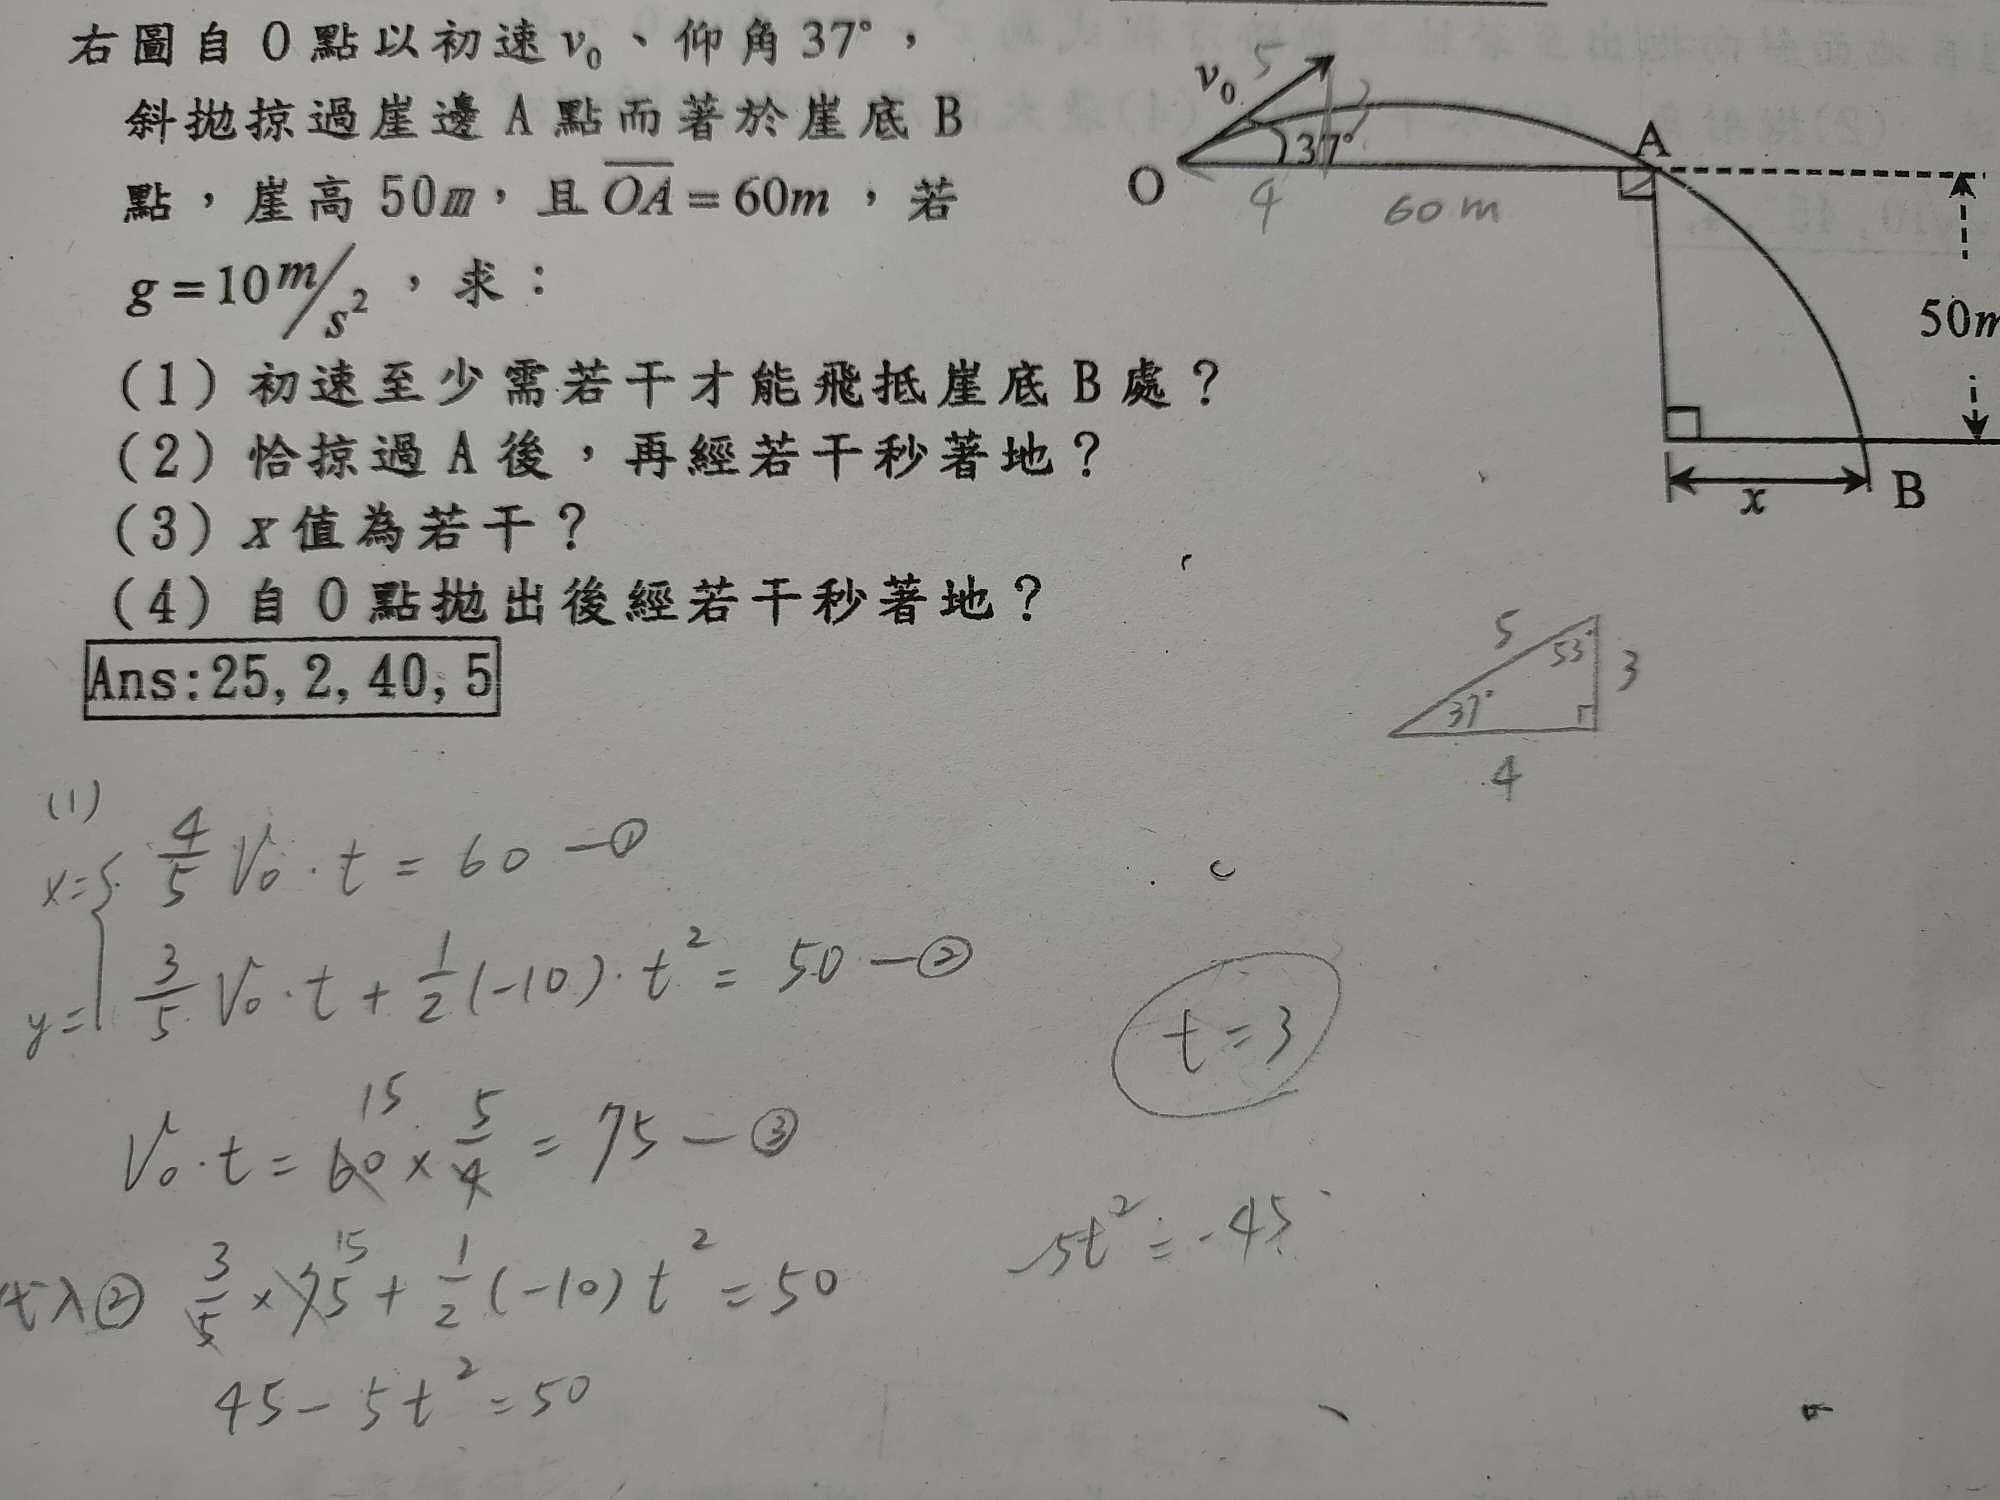 右圖自 O 點以初速 v₀、仰角 37°，
斜拋掠過崖邊 A 點而著於崖底 B
點，崖高 50m，且 \overline{OA} = 60m，若
g = 10 m/s²，求：
(1) 初速至少需若干才能飛抵崖底 B 處？
(2) 恰掠過 A 後，再經若干秒著地？
(3) x 值為若干？
(4) 自 O 點拋出後經若干秒著地？
Ans:25, 2, 40, 5
v₀ 5
3
37°
O
A
4
60 m
50m
x
B
5
53°
3
37°
4
(1)
x = 4/5 V₀ · t = 60 —①
y = 3/5 V₀ · t + 1/2 (-10) · t² = 50 —②
t = 3
15
V₀ · t = 60 × 5/4 = 75 —③
-5t² = -45
15
代入② 3/5 × 75 + 1/2 (-10) t² = 50
45 - 5t² = 50